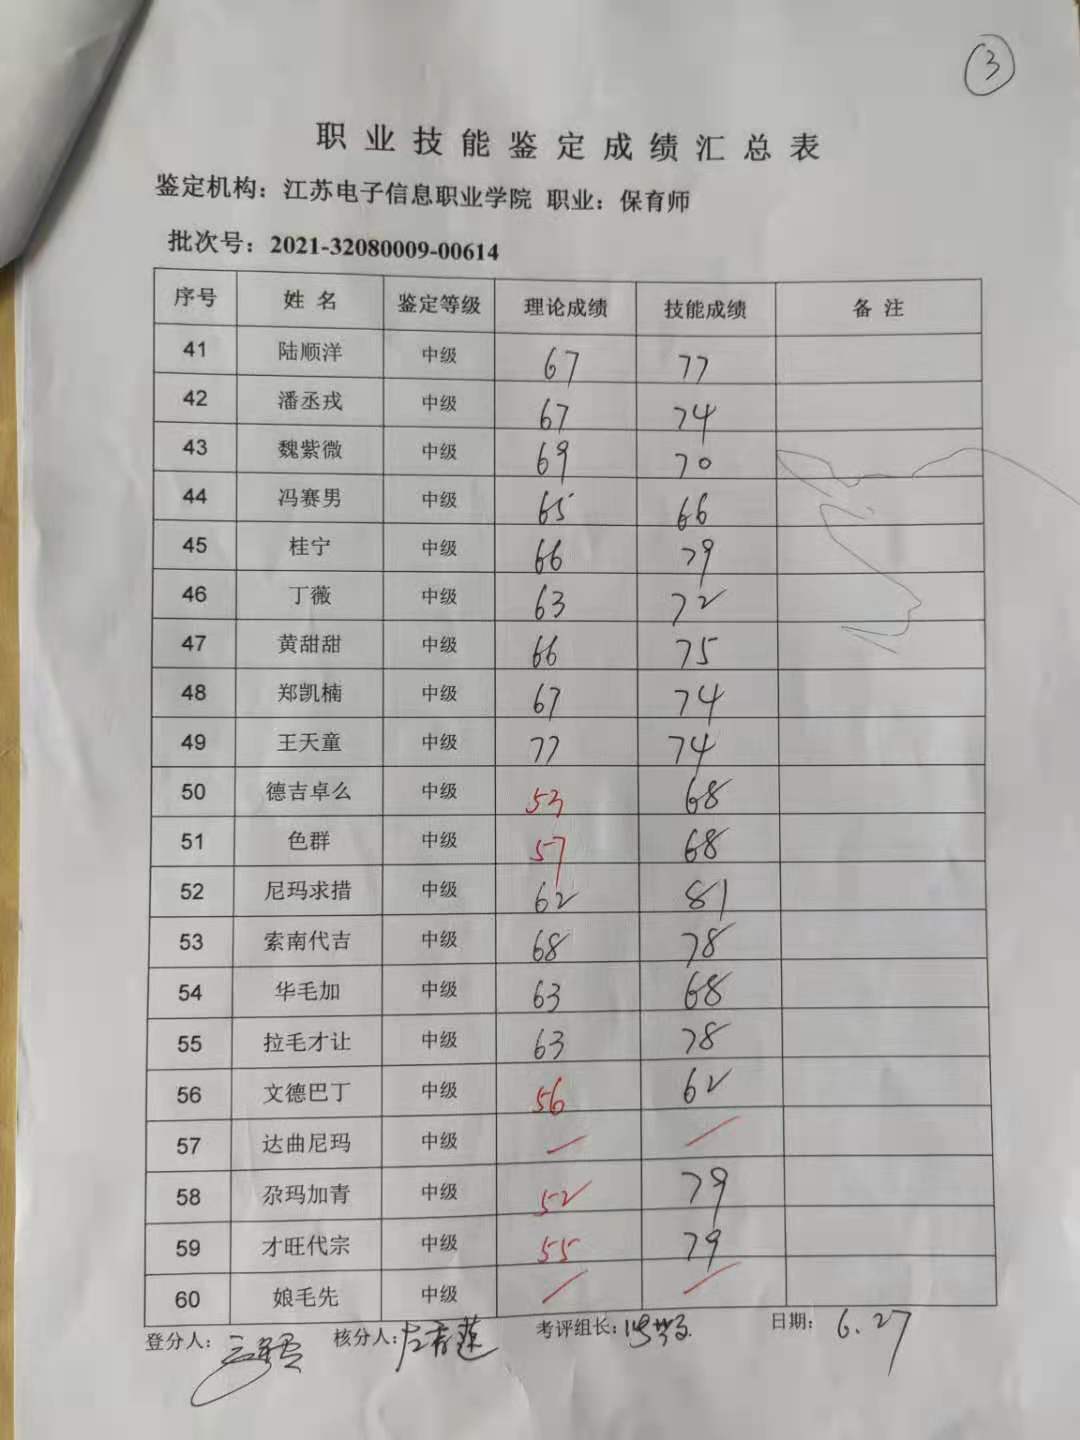 ③
职业技能鉴定成绩汇总表
鉴定机构：江苏电子信息职业学院 职业：保育师
批次号：2021-32080009-00614
序号 姓名 鉴定等级 理论成绩 技能成绩 备注
41 陆顺洋 中级 67 77
42 潘丞戎 中级 67 74
43 魏紫微 中级 69 70
44 冯赛男 中级 65 66
45 桂宁 中级 66 79
46 丁薇 中级 63 72
47 黄甜甜 中级 66 75
48 郑凯楠 中级 67 74
49 王天童 中级 77 74
50 德吉卓么 中级 53 68
51 色群 中级 57 68
52 尼玛求措 中级 62 81
53 索南代吉 中级 68 78
54 华毛加 中级 63 68
55 拉毛才让 中级 63 78
56 文德巴丁 中级 56 62
57 达曲尼玛 中级 / /
58 尕玛加青 中级 52 79
59 才旺代宗 中级 55 79
60 娘毛先 中级 / /
登分人： 核分人： 考评组长： 日期：6.27